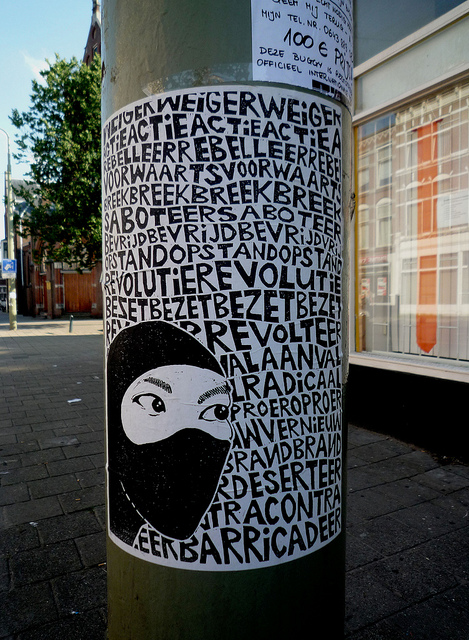 MIJN TEL. NR. 0613
100 €
DEZE BUGGY IS
OFFICIEEL
WEIGERWEIGERWEIGER
ACTIEACTIEACTIEA
REBELLEERREBELLEERREBE
VOORWAARTSVOORWAARTS
BREEKBREEKBREEKBREEK
SABOTEERSABOTEER
BEVRIJDBEVRIJDBEVRIJDVRIJ
OPSTANDOPSTANDOPSTAN
REVOLUTIEREVOLUTIE
BEZETBEZETBEZETBEZET
REVOLTEER
VALAANVAL
LRADICAAL
PROEROPROER
VERNIEUW
BRANDBRAND
RDESERTEER
TRACONTRA
EERBARRICADEER